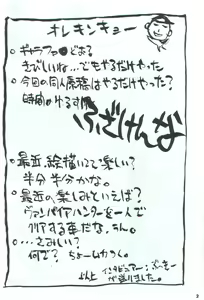 オレキンキョー
ギャラファ どお?
きびしいね…でもやるだけやった
今回の同人原稿はやるだけやった?
時間のゆるす限
ふざけんな
最近、絵描いてて楽しい?
半分半分かな。
最近の楽しみといえば?
ヴァンパイアハンターを一人で
クリアする事だな,,ん。
…さみしい?
何で? ちょームカつく。
以上 インタビュアー:
が送りました。